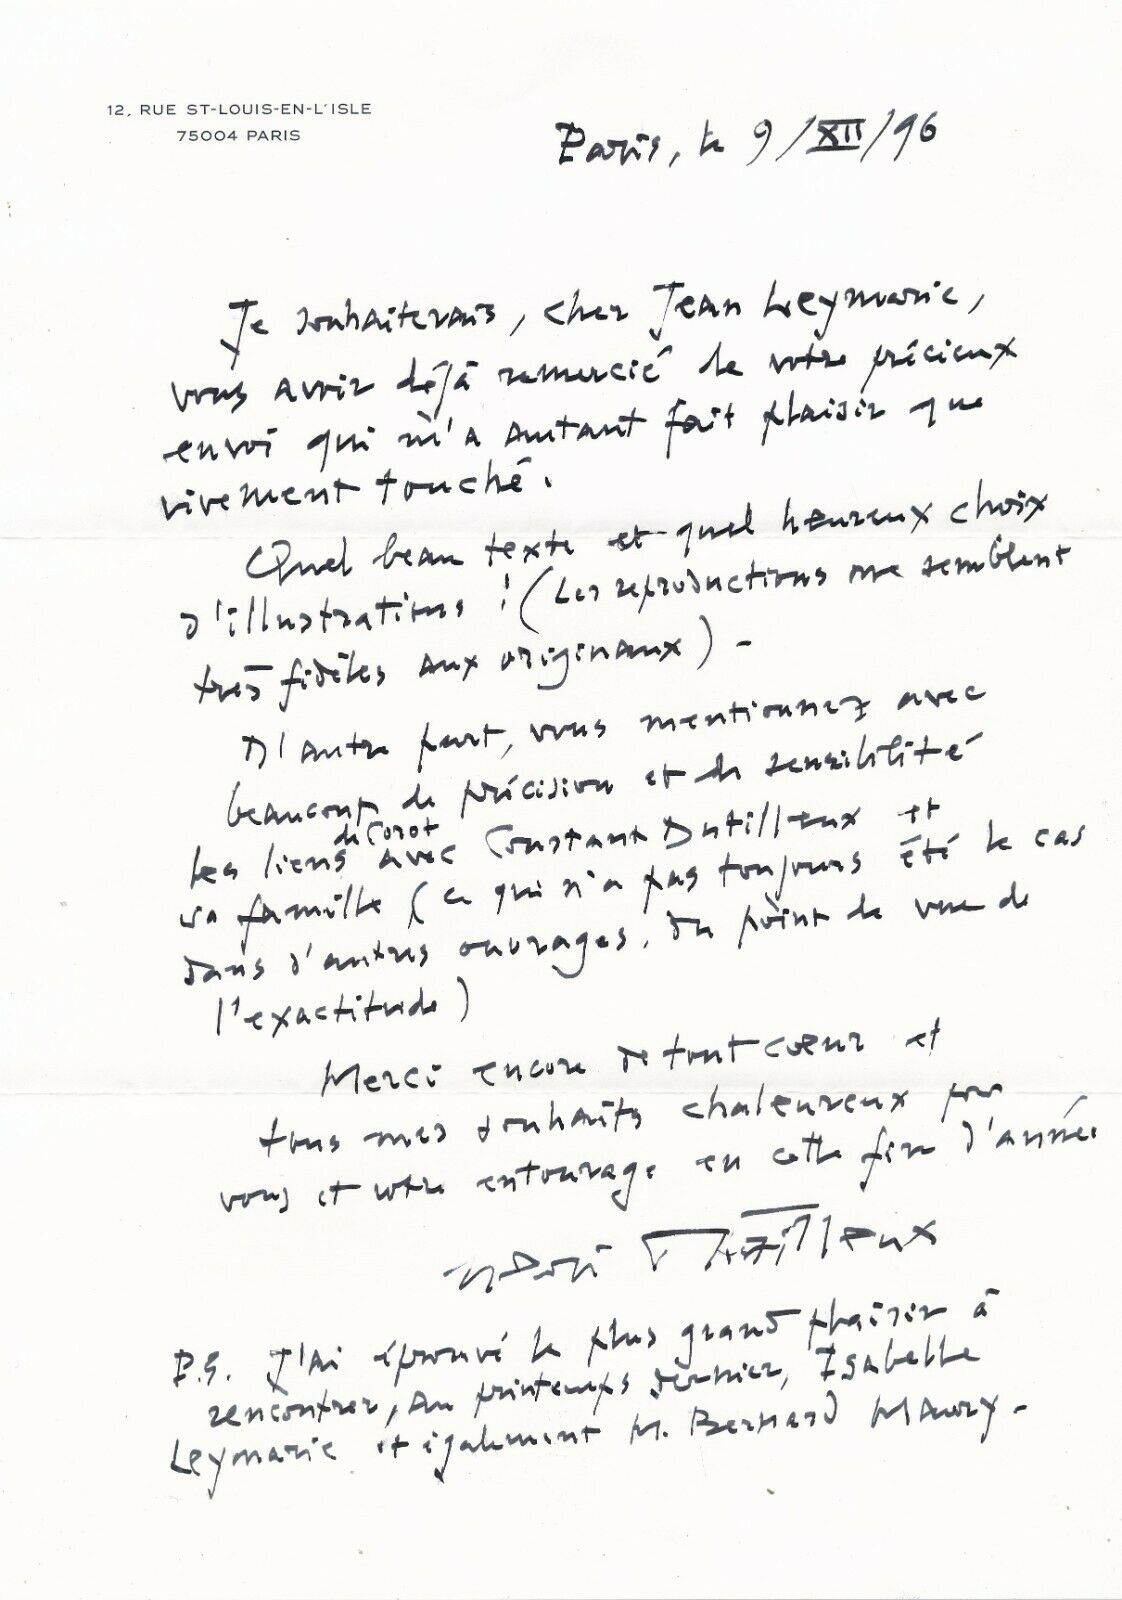 12, RUE ST-LOUIS-EN-L'ISLE
75004 PARIS
Paris, le 9/XII/96
Je souhaiterais, cher Jean Leymarie,
vous avoir déjà remercié de votre précieux
envoi qui m'a autant fait plaisir que
vivement touché.
Quel beau texte et quel heureux choix
d'illustrations ! (Les reproductions me semblent
très fidèles aux originaux) -
D'autre part, vous mentionnez avec
beaucoup de précision et de sensibilité
de Corot
les liens avec Constant Dutilleux et
sa famille (ce qui n'a pas toujours été le cas
dans d'autres ouvrages, du point de vue de
l'exactitude)
Merci encore de tout cœur et
tous mes souhaits chaleureux pour
vous et votre entourage en cette fin d'année
Henri Dutilleux
P.S. J'ai éprouvé le plus grand plaisir à
rencontrer, au printemps dernier, Isabelle
Leymarie et également M. Bernard Maury -